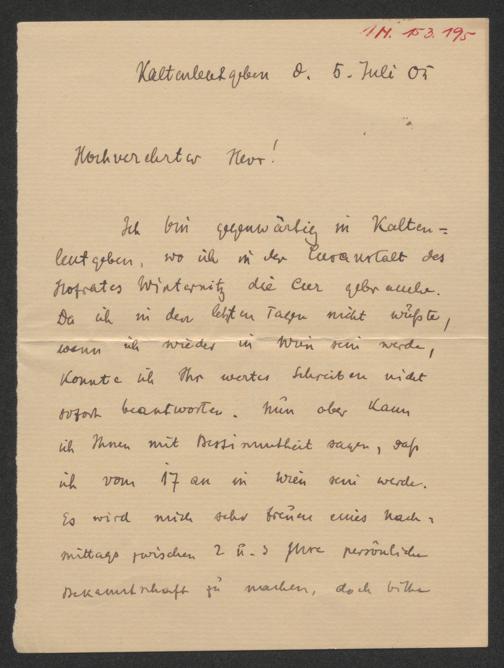 IN. 153.195
Kaltenleutgeben d. 5. Juli 05
Hochverehrter Herr!
Ich bin gegenwärtig in Kalten=
leutgeben, wo ich in der Curanstalt des
Hofrates Winternitz die Cur gebrauche.
Da ich in den letzten Tagen nicht wußte,
wann ich wieder in Wien sein werde,
konnte ich Ihr wertes Schreiben nicht
sofort beantworten. Nun aber kann
ich Ihnen mit Bestimmtheit sagen, daß
ich vom 17 an in Wien sein werde.
Es wird mich sehr freuen eines Nach=
mittags zwischen 2 u. 3 Ihre persönliche
Bekanntschaft zu machen, doch bitte